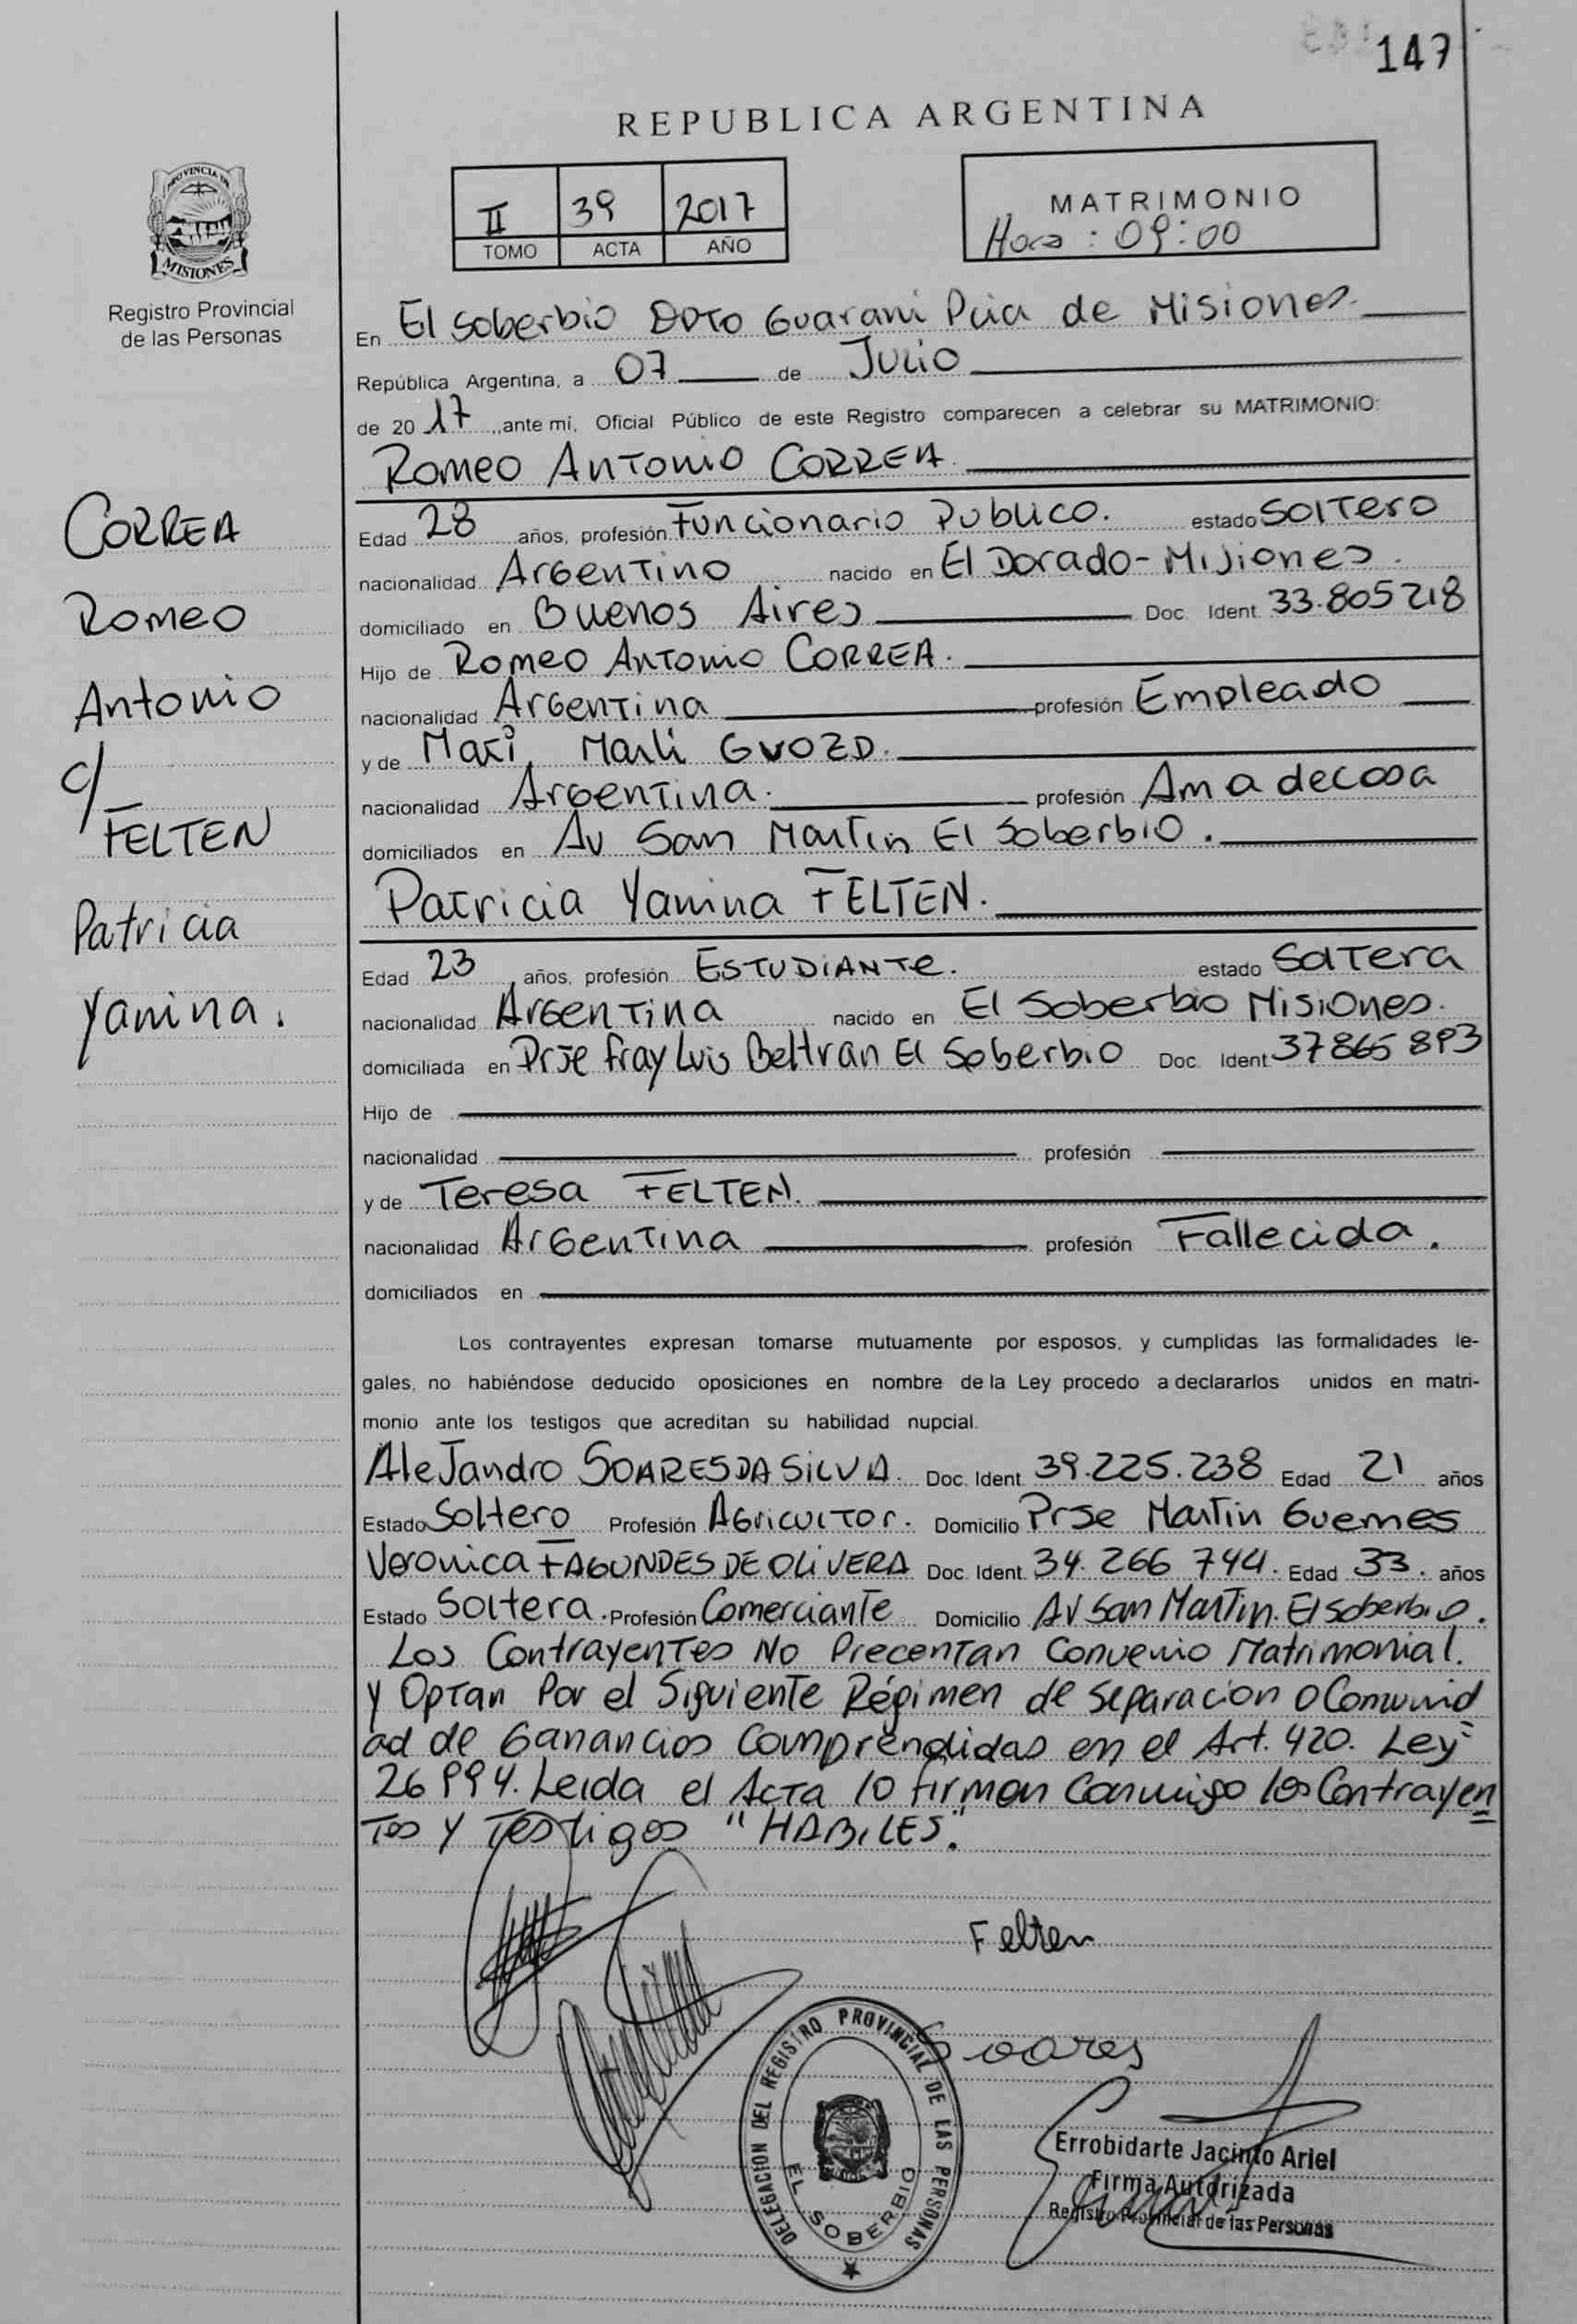 147
REPUBLICA ARGENTINA
II 39 2017
TOMO ACTA AÑO
MATRIMONIO
Hora : 09:00
PROVINCIA DE
MISIONES
Registro Provincial
de las Personas
En El Soberbio DPTO Guarani Pcia de Misiones
República Argentina, a 07 de Julio
de 20 17 ,ante mi, Oficial Público de este Registro comparecen a celebrar su MATRIMONIO:
Romeo Antonio CORREA
Edad 28 años, profesión Funcionario Publico. estado Soltero
nacionalidad Argentino nacido en El Dorado - Misiones.
domiciliado en Buenos Aires Doc. Ident. 33.805218
Hijo de Romeo Antonio CORREA.
nacionalidad Argentina profesión Empleado
y de Mari Marli GVOZD.
nacionalidad Argentina. profesión Ama de casa
domiciliados en Av San Martin El Soberbio.
Patricia Yanina FELTEN.
Edad 23 años, profesión ESTUDIANTE. estado Soltera
nacionalidad Argentina nacido en El Soberbio Misiones.
domiciliada en Prje Fray Luis Beltran El Soberbio Doc. Ident. 37865 893
Hijo de
nacionalidad profesión
y de Teresa FELTEN.
nacionalidad Argentina profesión Fallecida.
domiciliados en
Los contrayentes expresan tomarse mutuamente por esposos, y cumplidas las formalidades le-
gales, no habiéndose deducido oposiciones en nombre de la Ley procedo a declararlos unidos en matri-
monio ante los testigos que acreditan su habilidad nupcial.
Alejandro SOARES DA SILVA. Doc. Ident. 39.225.238 Edad 21 años
Estado Soltero Profesión Agricultor. Domicilio Prje Martin Guemes
Veronica FAGUNDES DE OLIVERA Doc. Ident. 34.266 744. Edad 33. años
Estado Soltera. Profesión Comerciante Domicilio AV San Martin. El Soberbio.
Los Contrayentes No Precentan Convenio Matrimonial.
y Optan Por el Siguiente Régimen de separacion o Comunid
ad de Ganancias Comprendidas en el Art. 420. Ley=
26994. Leida el Acta lo firman Conmigo los Contrayen
tes y Testigos "HABILES".
CORREA
Romeo
Antonio
c/
FELTEN
Patricia
Yanina.
Felten
Soares
DELEGACION DEL REGISTRO PROVINCIAL DE LAS PERSONAS
EL SOBERBIO
Errobidarte Jacinto Ariel
Firma Autorizada
Registro Provincial de las Personas